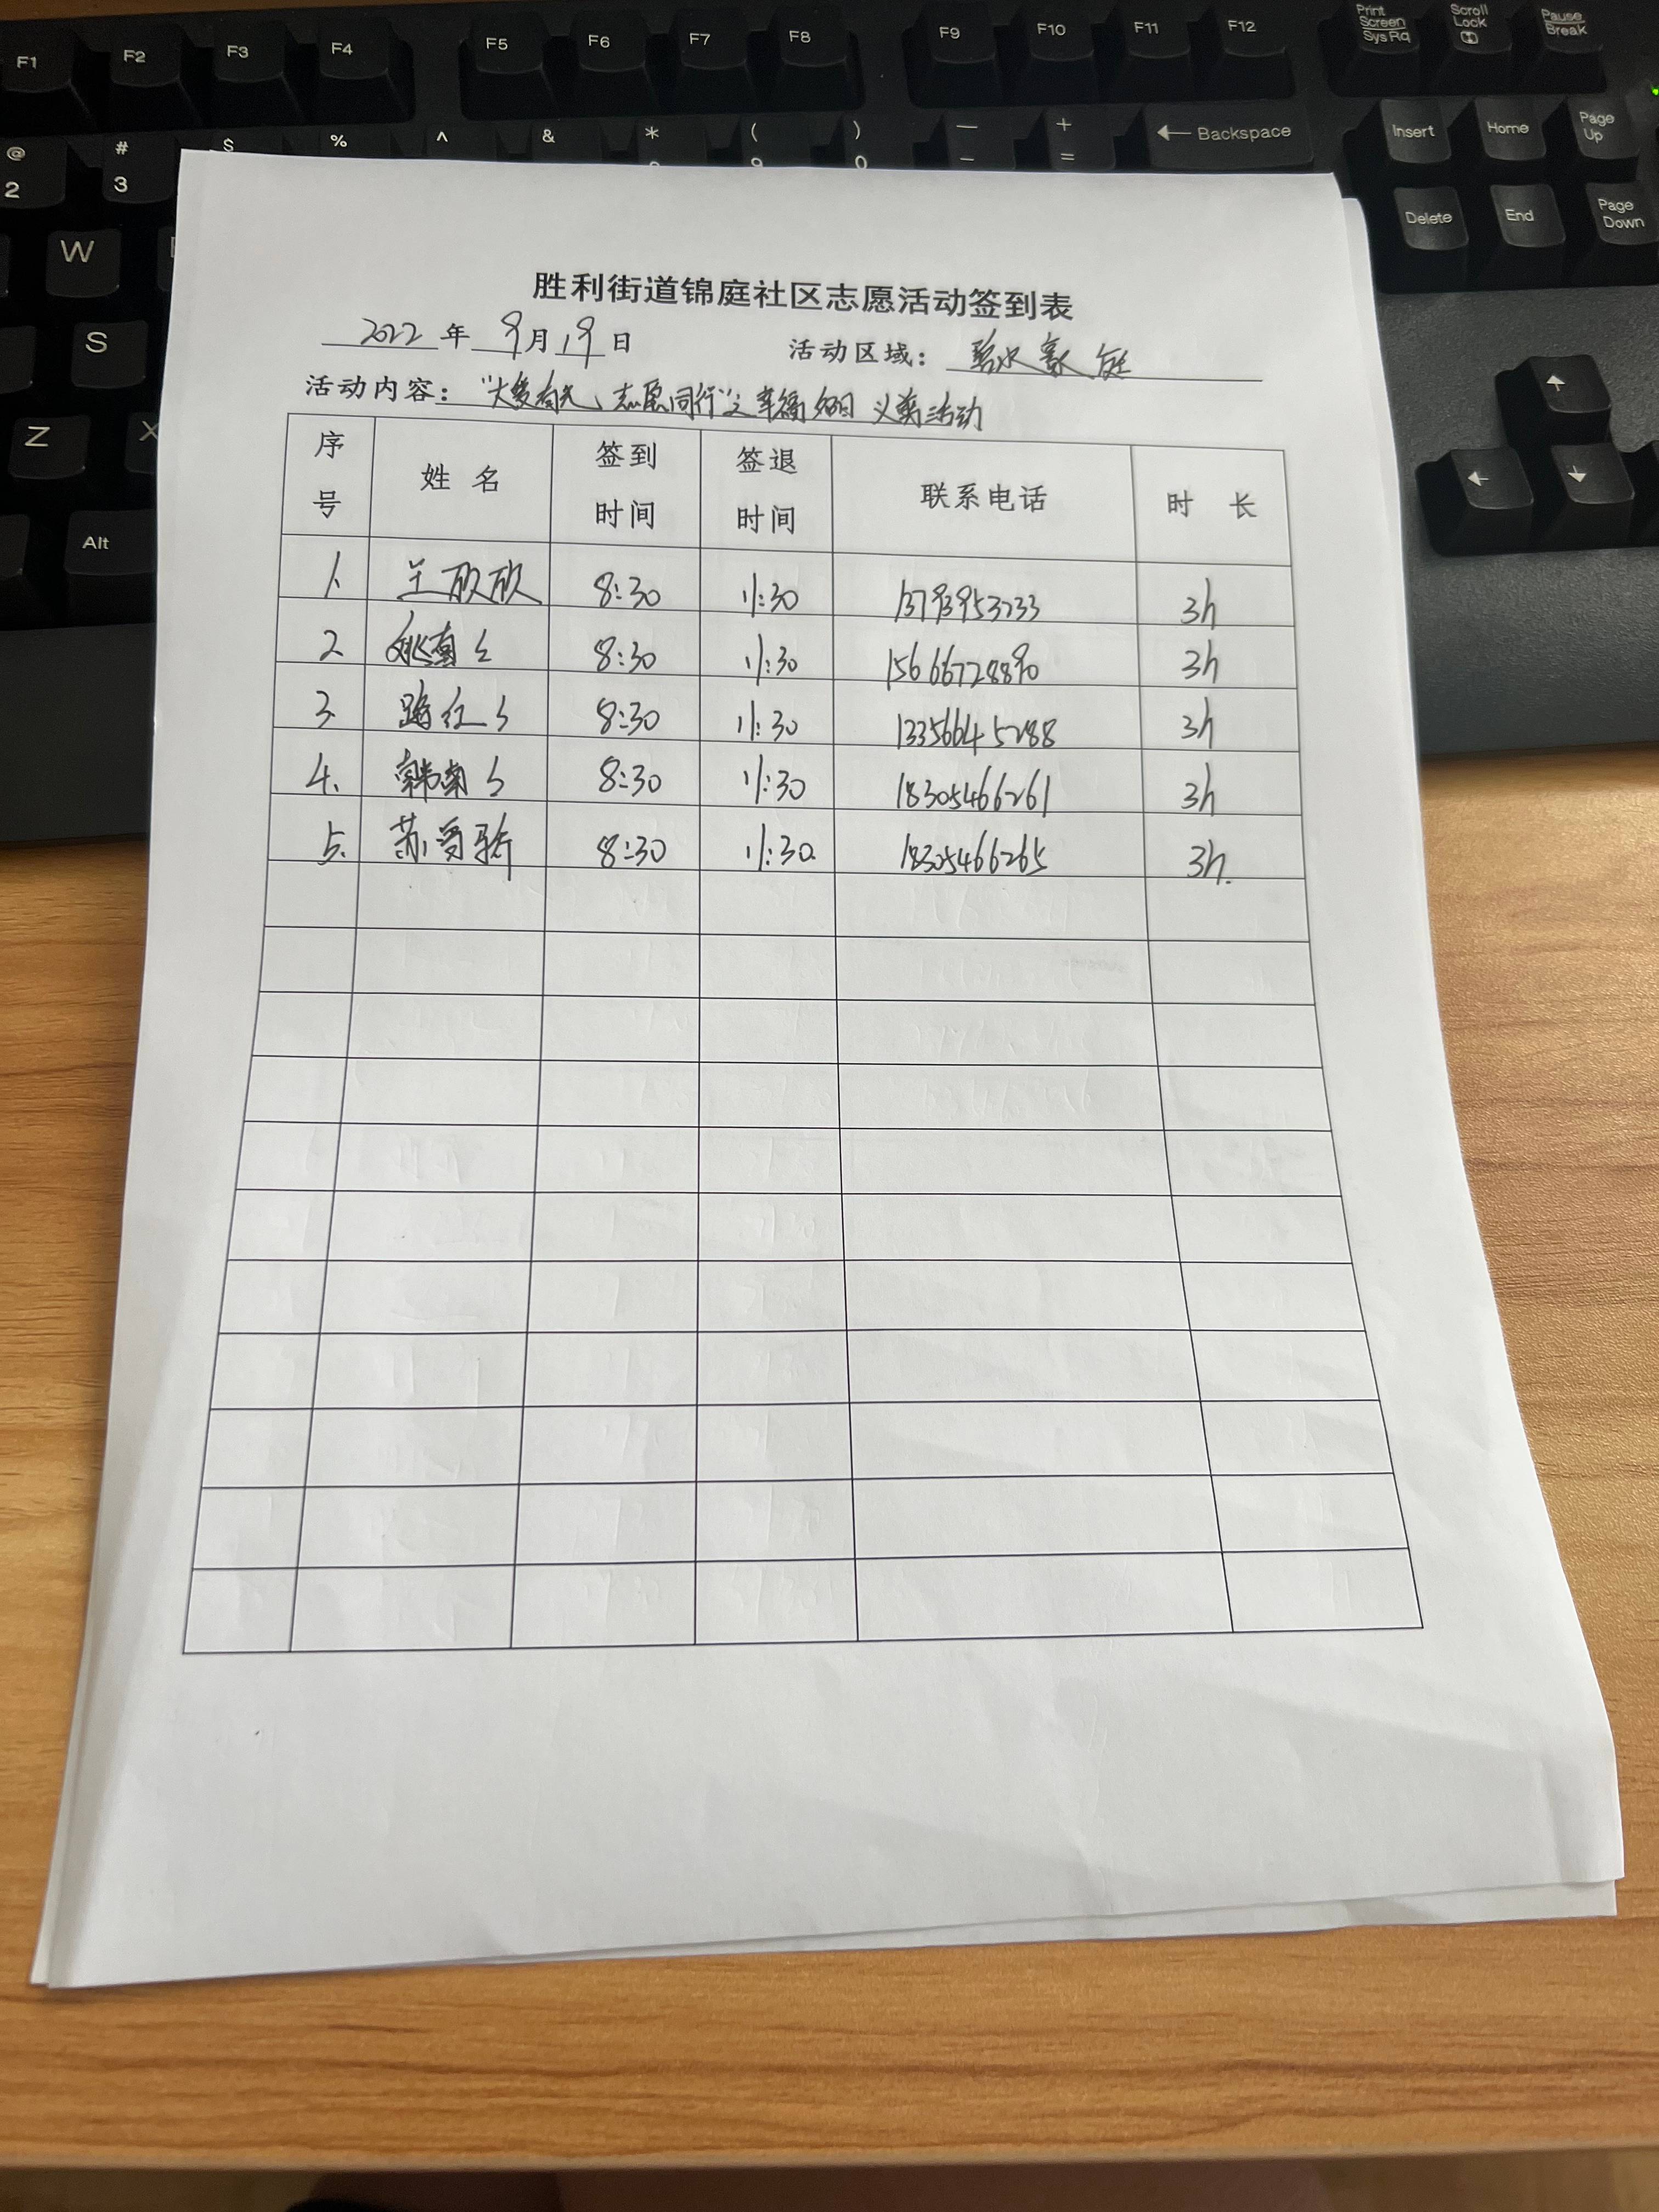 F1 F2 F3 F4 F5 F6 F7 F8 F9 F10 F11 F12 Print Screen SysRq Scroll Lock Pause Break
@ 2 # 3 $ % ^ & * ( 9 ) 0 — - + = ← Backspace Insert Home Page Up
W Delete End Page Down
S
Z X
Alt
胜利街道锦庭社区志愿活动签到表
2022 年 9 月 19 日 活动区域: 碧水豪庭
活动内容: 志愿同行"之幸福 义剪活动
序号 姓名 签到时间 签退时间 联系电话 时长
1. 王欣欣 8:30 11:30 13793953233 3h
2 姚真真 8:30 11:30 15666728890 3h
3. 路红红 8:30 11:30 13356645288 3h
4. 韩南南 8:30 11:30 18305466261 3h
5. 苏 8:30 11:30. 18305466265 3h.